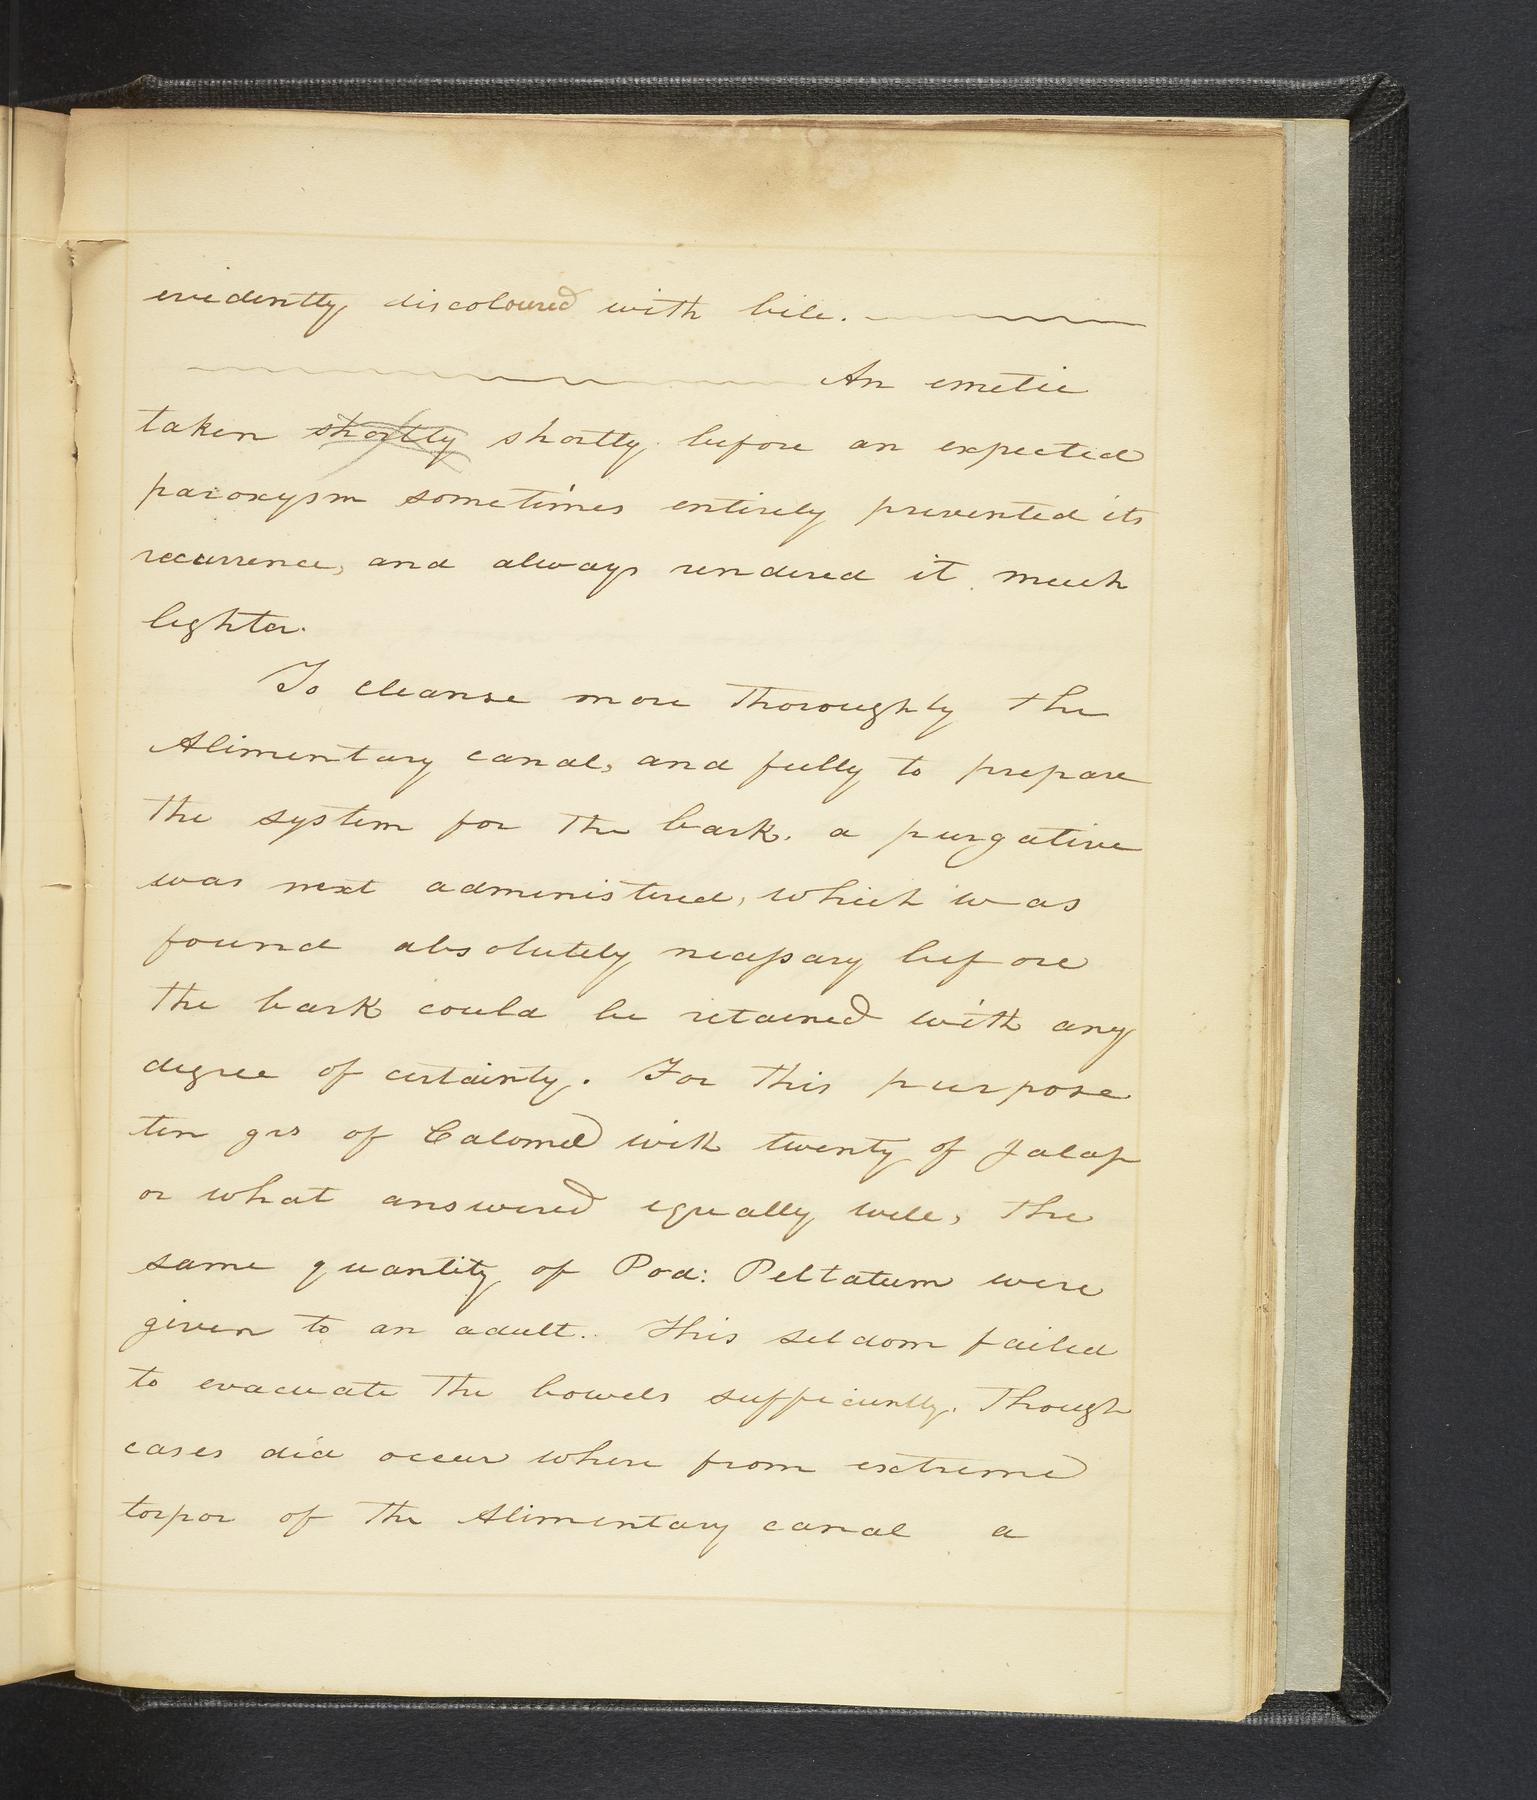 evidently discoloured with bile.
An emetic
taken shortly shortly before an expected
paroxysm sometimes entirely prevented its
recurrence, and always rendered it much
lighter.
To cleanse more thoroughly the
Alimentary canal, and fully to prepare
the system for the bark. a purgative
was next administered, which was
found absolutely necessary before
the bark could be retained with any
degree of certainty. For this purpose
ten grs of Calomel with twenty of Jalap
or what answered equally well, the
same quantity of Pod: Peltatum were
given to an adult. This seldom failed
to evacuate the bowels sufficiently. Though
cases did occur where from extreme
torpor of the Alimentary canal a